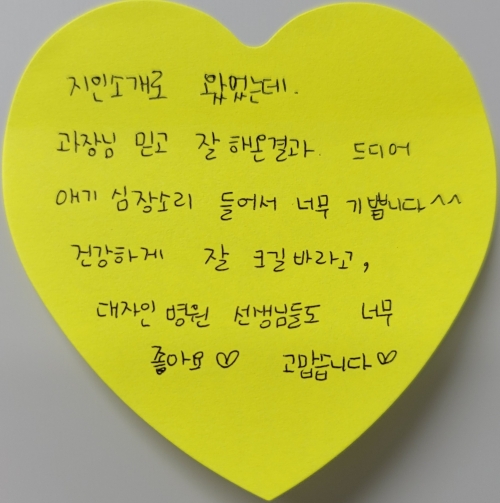 지인소개로 왔었는데.
과장님 믿고 잘 해온결과. 드디어
애기 심장소리 들어서 너무 기쁩니다^^
건강하게 잘 크길바라고,
대자인 병원 선생님들도 너무
좋아요♡ 고맙습니다♡